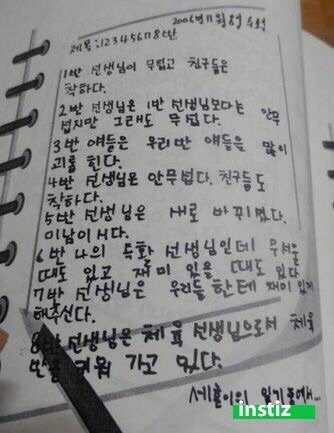 2006년 11월 8일 수요
제목:12345678반
1반 선생님이 무렵고 친구들은
착하다.
2반 선생님은 1반 선생님보다는 안무
럽지만 그래도 무럽다.
3반 얘들은 우리반 얘들을 많이
괴롭 힌다.
4반 선생님은 안무럽다. 친구들도
착하다.
5반 선생님은 새로 바뀌셨다.
미남이시다.
6반 나의 특화 선생님인데 무서울
때도 있고 재미 있을 때도 있다
7반 선생님은 우리들 한테 재미있게
해주신다.
8반 선생님은 체육 선생님으로서 체육
반을 키워 가고 있다.
세훈이의 일기중에서...
instiz